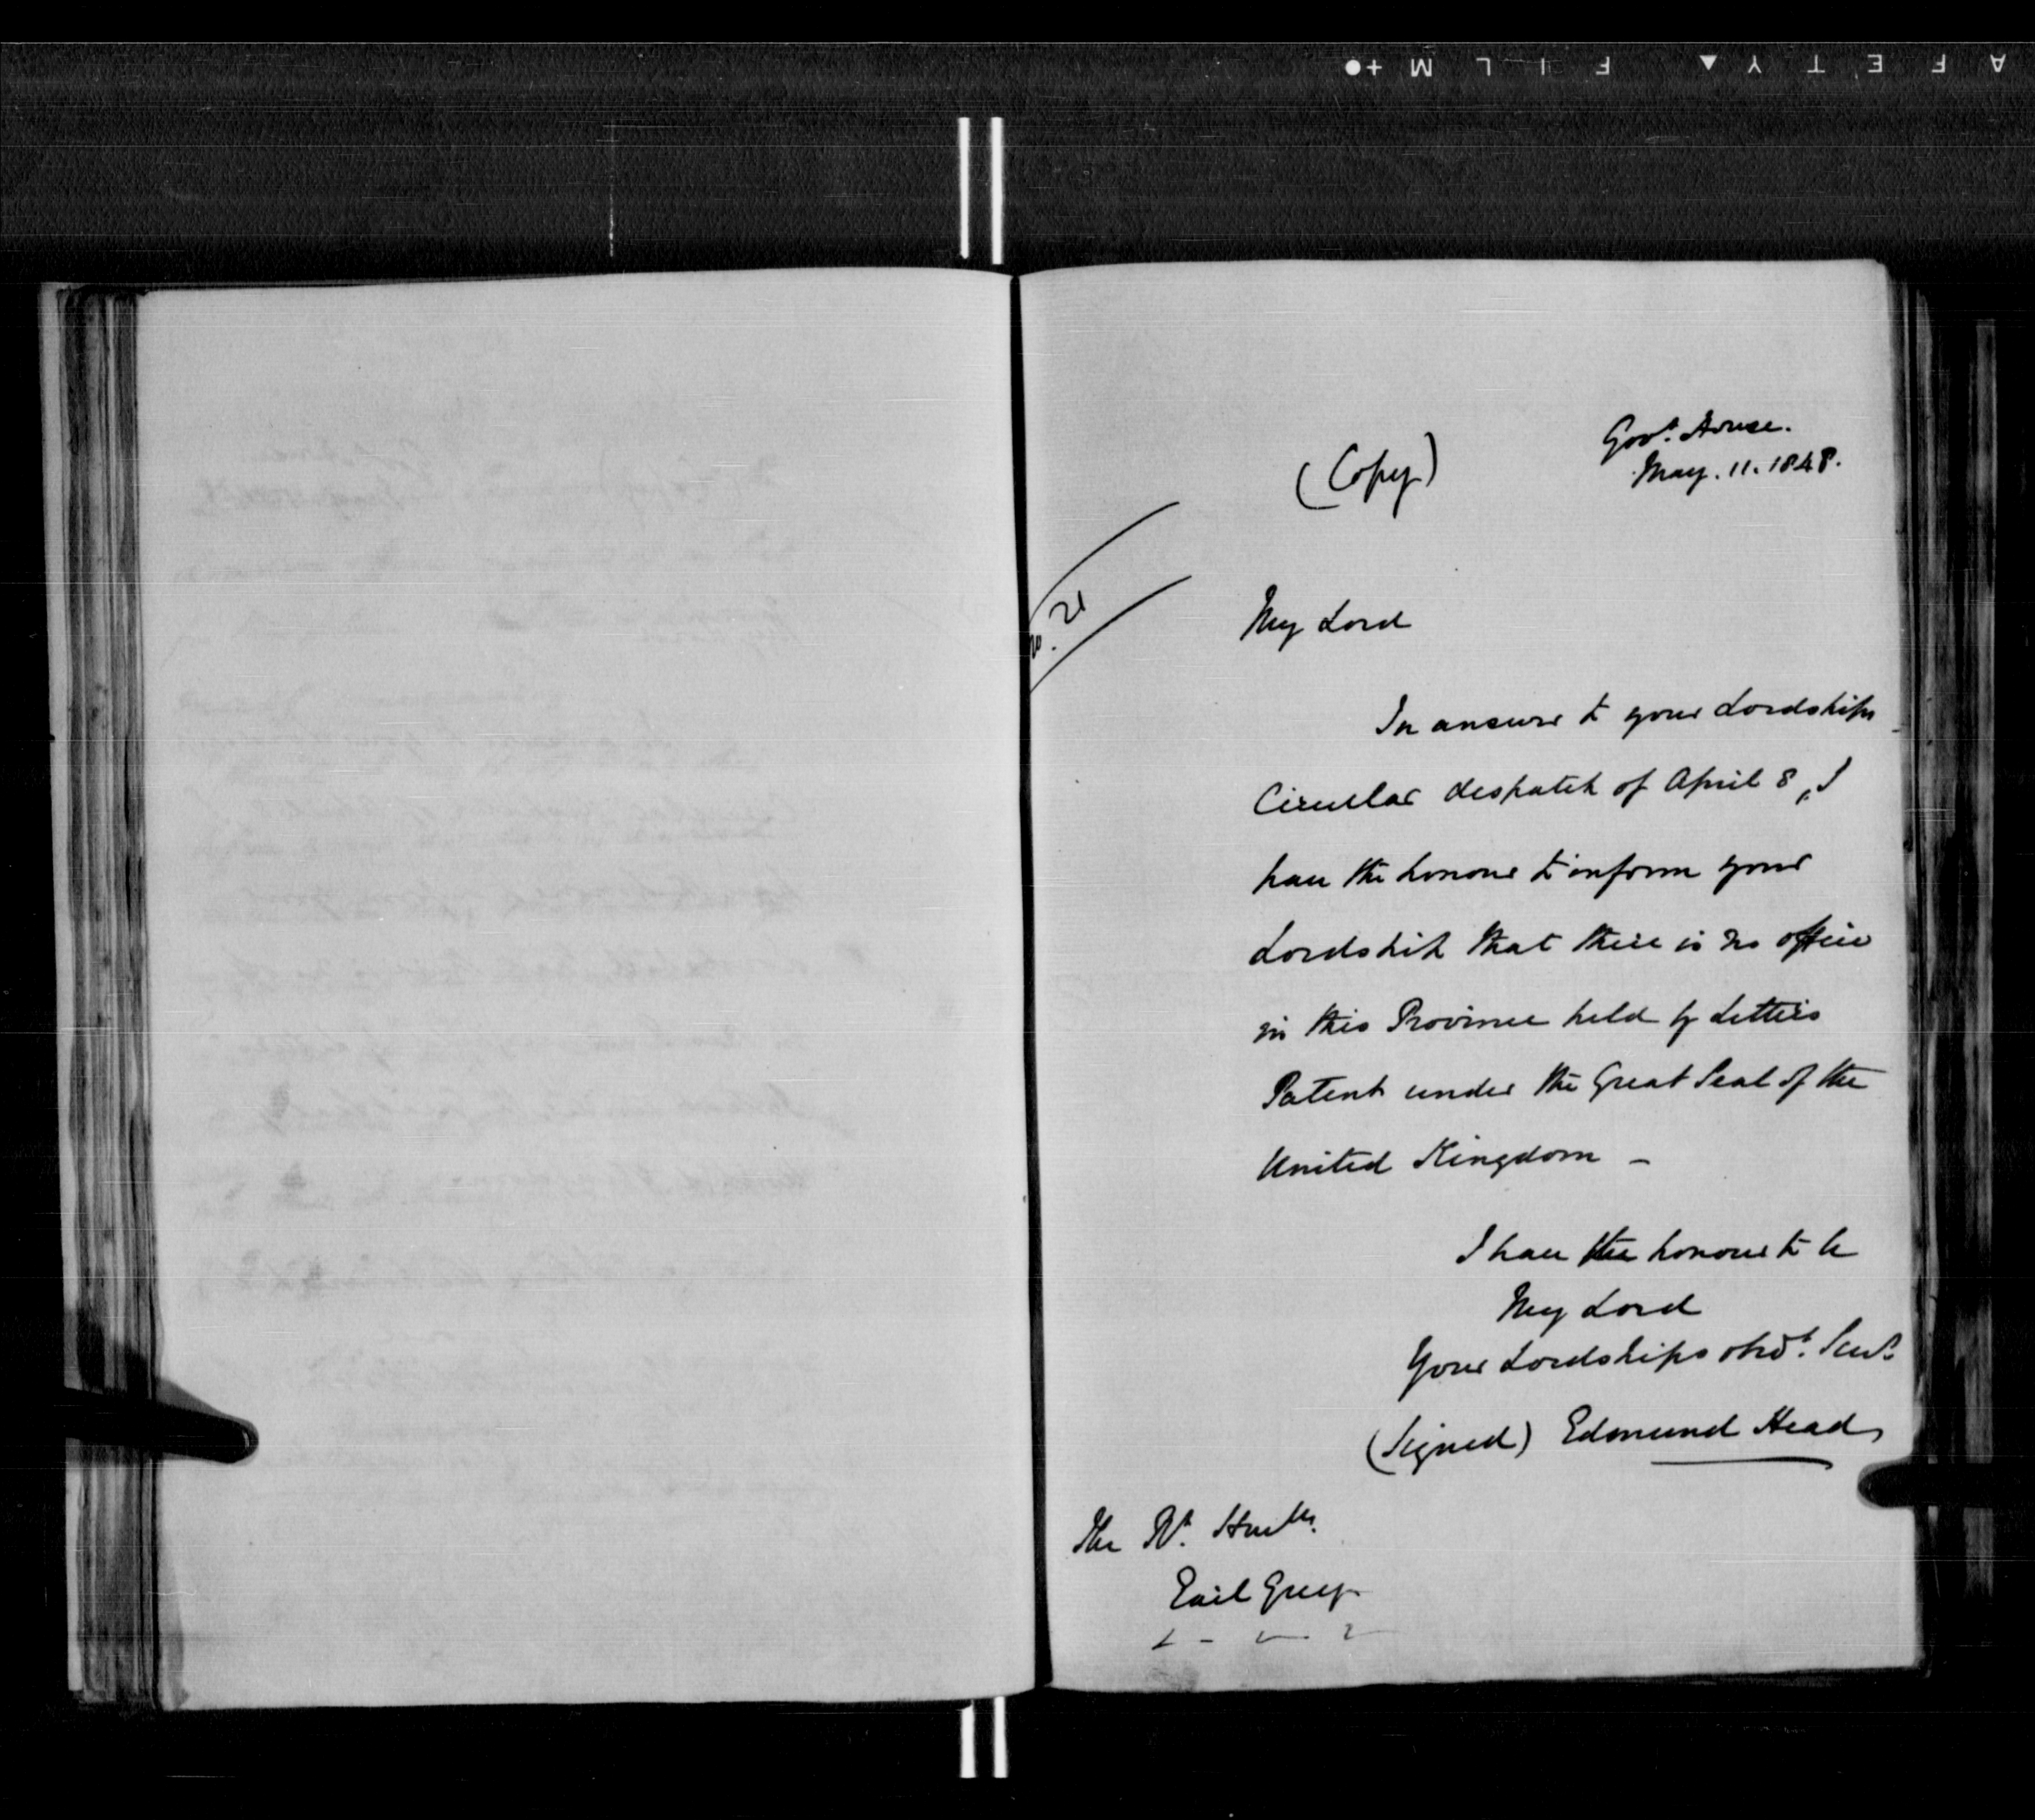 SAFETY ▲ FILM +●
Govt. House.
May. 11. 1848.
(Copy)
No. 21
My Lord
In answer to your Lordships
Circular despatch of April 8, I
have the honour to inform your
Lordship that there is no office
in this Province held by Letters
Patent under the Great Seal of the
United Kingdom –
I have the honour to be
My Lord
Your Lordships obdt. Servt
(Signed) Edmund Head
The Rt. Honble.
Earl Grey